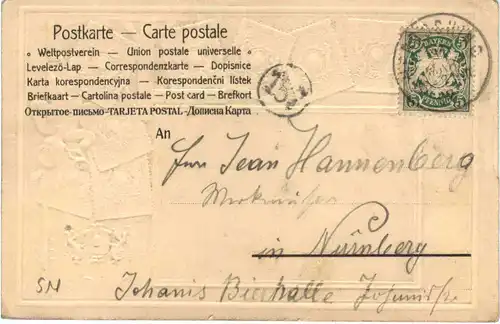 Postkarte — Carte postale
Weltpostverein — Union postale universelle
Levelező-Lap — Correspondenzkarte — Dopisnice
Karta korespondencyjna — Korespondenční lístek
Briefkaart — Cartolina postale — Post card — Brefkort
Открытое-письмо-TARJETA POSTAL-Дописна Карта
5 BAYERN 5
PFENNIG
An
Jean Hannenberg
in Nürnberg
SM Johanis Bierhalle